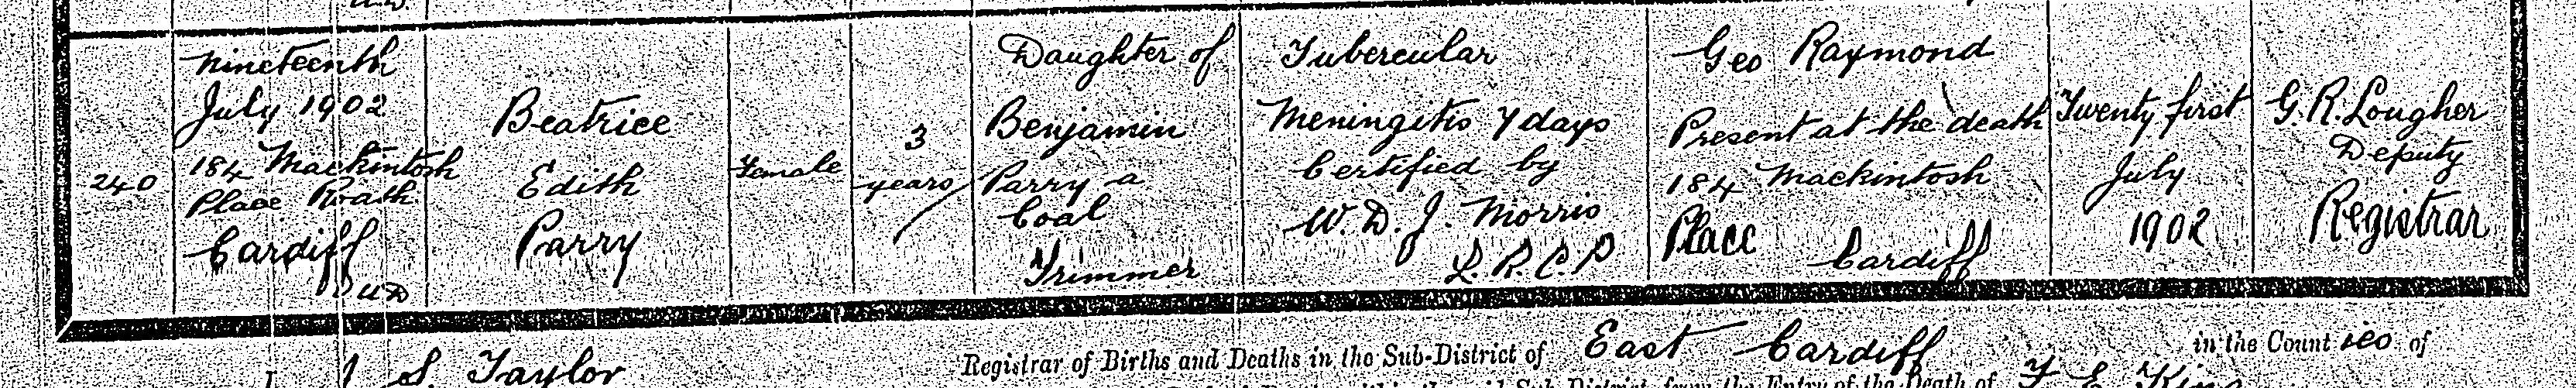 240
Nineteenth
July 1902
184 Mackintosh
Place Roath
Cardiff
U.D.
Beatrice
Edith
Parry
Female
3
years
Daughter of
Benjamin
Parry a
Coal
Trimmer
Tubercular
Meningitis 7 days
Certified by
W. D. J. Morris
L. R. C. P
Geo Raymond
Present at the death
184 Mackintosh
Place Cardiff
Twenty first
July
1902
G. R. Lougher
Deputy
Registrar
S. Taylor Registrar of Births and Deaths in the Sub-District of East Cardiff in the Counties of
the Entry of the Death of